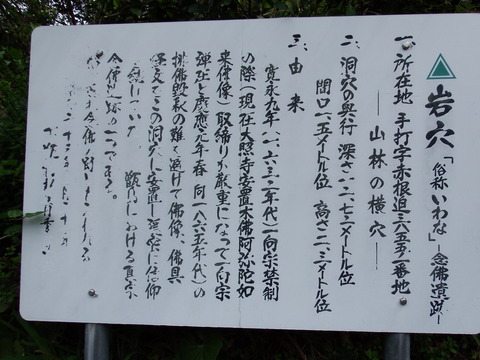 岩穴「俗称いわな」―念佛遺跡―
一、所在地 手打字赤根迫三六五五ノ一番地
―山林の横穴―
二、洞穴の奥行 深さ一二、七二メートル位
間口一、五メートル位 高さ二、三メートル位
三、由来
寛永九年(一、六、三、二年代)一向宗禁制
の際(現在大照寺安置木佛阿弥陀如
来偉像)取締りが厳重になって一向宗
弾圧と慶應元年春同一八六五年代)の
排佛毀釈の難を避けて佛像、佛具
経文をこの洞穴に安置し密かに信仰
していた 甑島における真宗
念佛 の一つである。